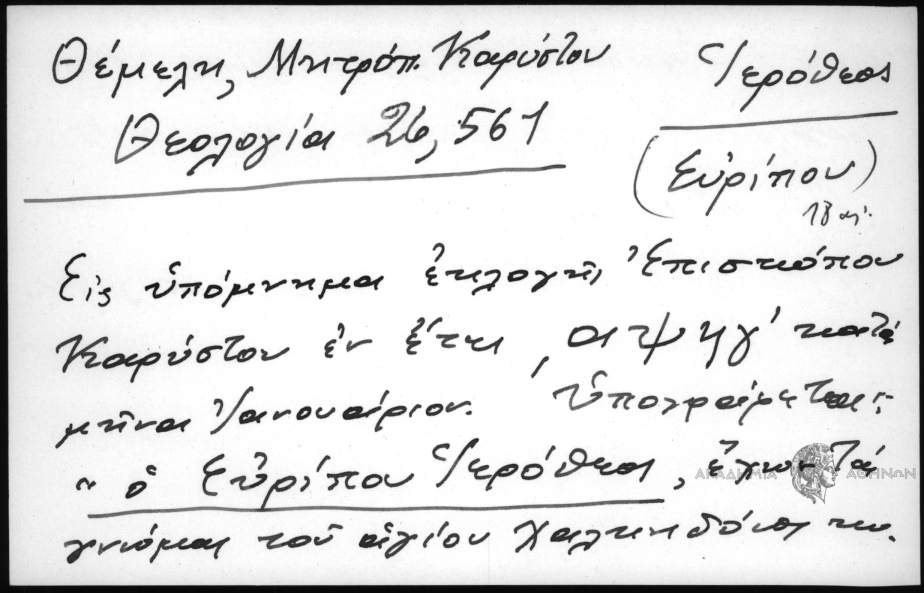 Θέμελη, Μητροπ. Καρύστου
Θεολογία 26, 561
Ἱερόθεος
(Εὐρίπου)
18 αἰ.
Εἰς ὑπόμνημα ἐκλογῆς Ἐπισκόπου
Καρύστου ἐν ἔτει ,αψηγ' κατὰ
μῆνα Ἰανουάριον. Ὑπογράφεται:
"ὁ Εὐρίπου Ἱερόθεος, ἔχων τὰ
γνώμην τοῦ ἁγίου Χαλκηδόνος κυ.
ΑΚΑΔΗΜΙΑ ΑΘΗΝΩΝ